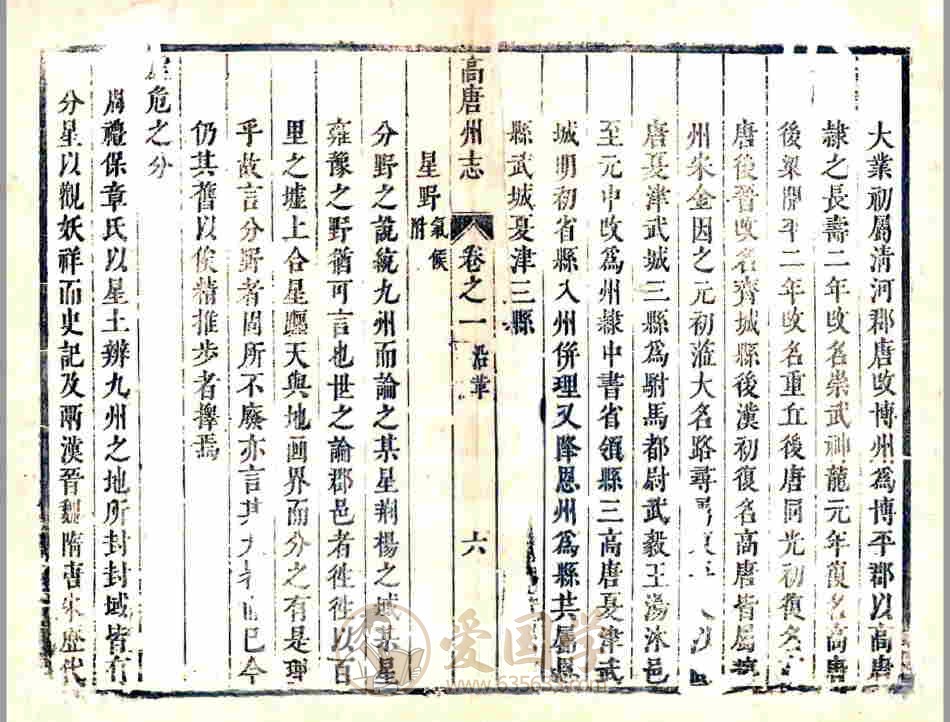 大業初屬清河郡唐改博州為博平郡以高唐
隸之長壽二年改名崇武神龍元年復名高唐
後梁開平二年改名重丘後唐同光初復名
唐後晉改名齊城縣後漢初復名高唐皆屬
州宋金因之元初滋大名路尋
唐夏津武城三縣為駙馬都尉武毅王湯沐邑
至元中改為州隸中書省領縣三高唐夏津武
城明初省縣入州併理又降恩州為縣共屬縣
縣武城夏津三縣
高唐州志 卷之一 沿革 六
星野 氣候附
分野之說統九州而論之某星荊楊之域某星
雍豫之野猶可言也世之論郡邑者徃徃以百
里之墟上合星躔天與地画界而分之有是理
乎故言分野者固所不廢亦言其大 而已今
仍其舊以俟精推步者擇焉
危之分
周禮保章氏以星土辨九州之地所封封域皆有
分星以觀妖祥而史記及兩漢晉魏隋唐宋歷代
爱国学
www.6356